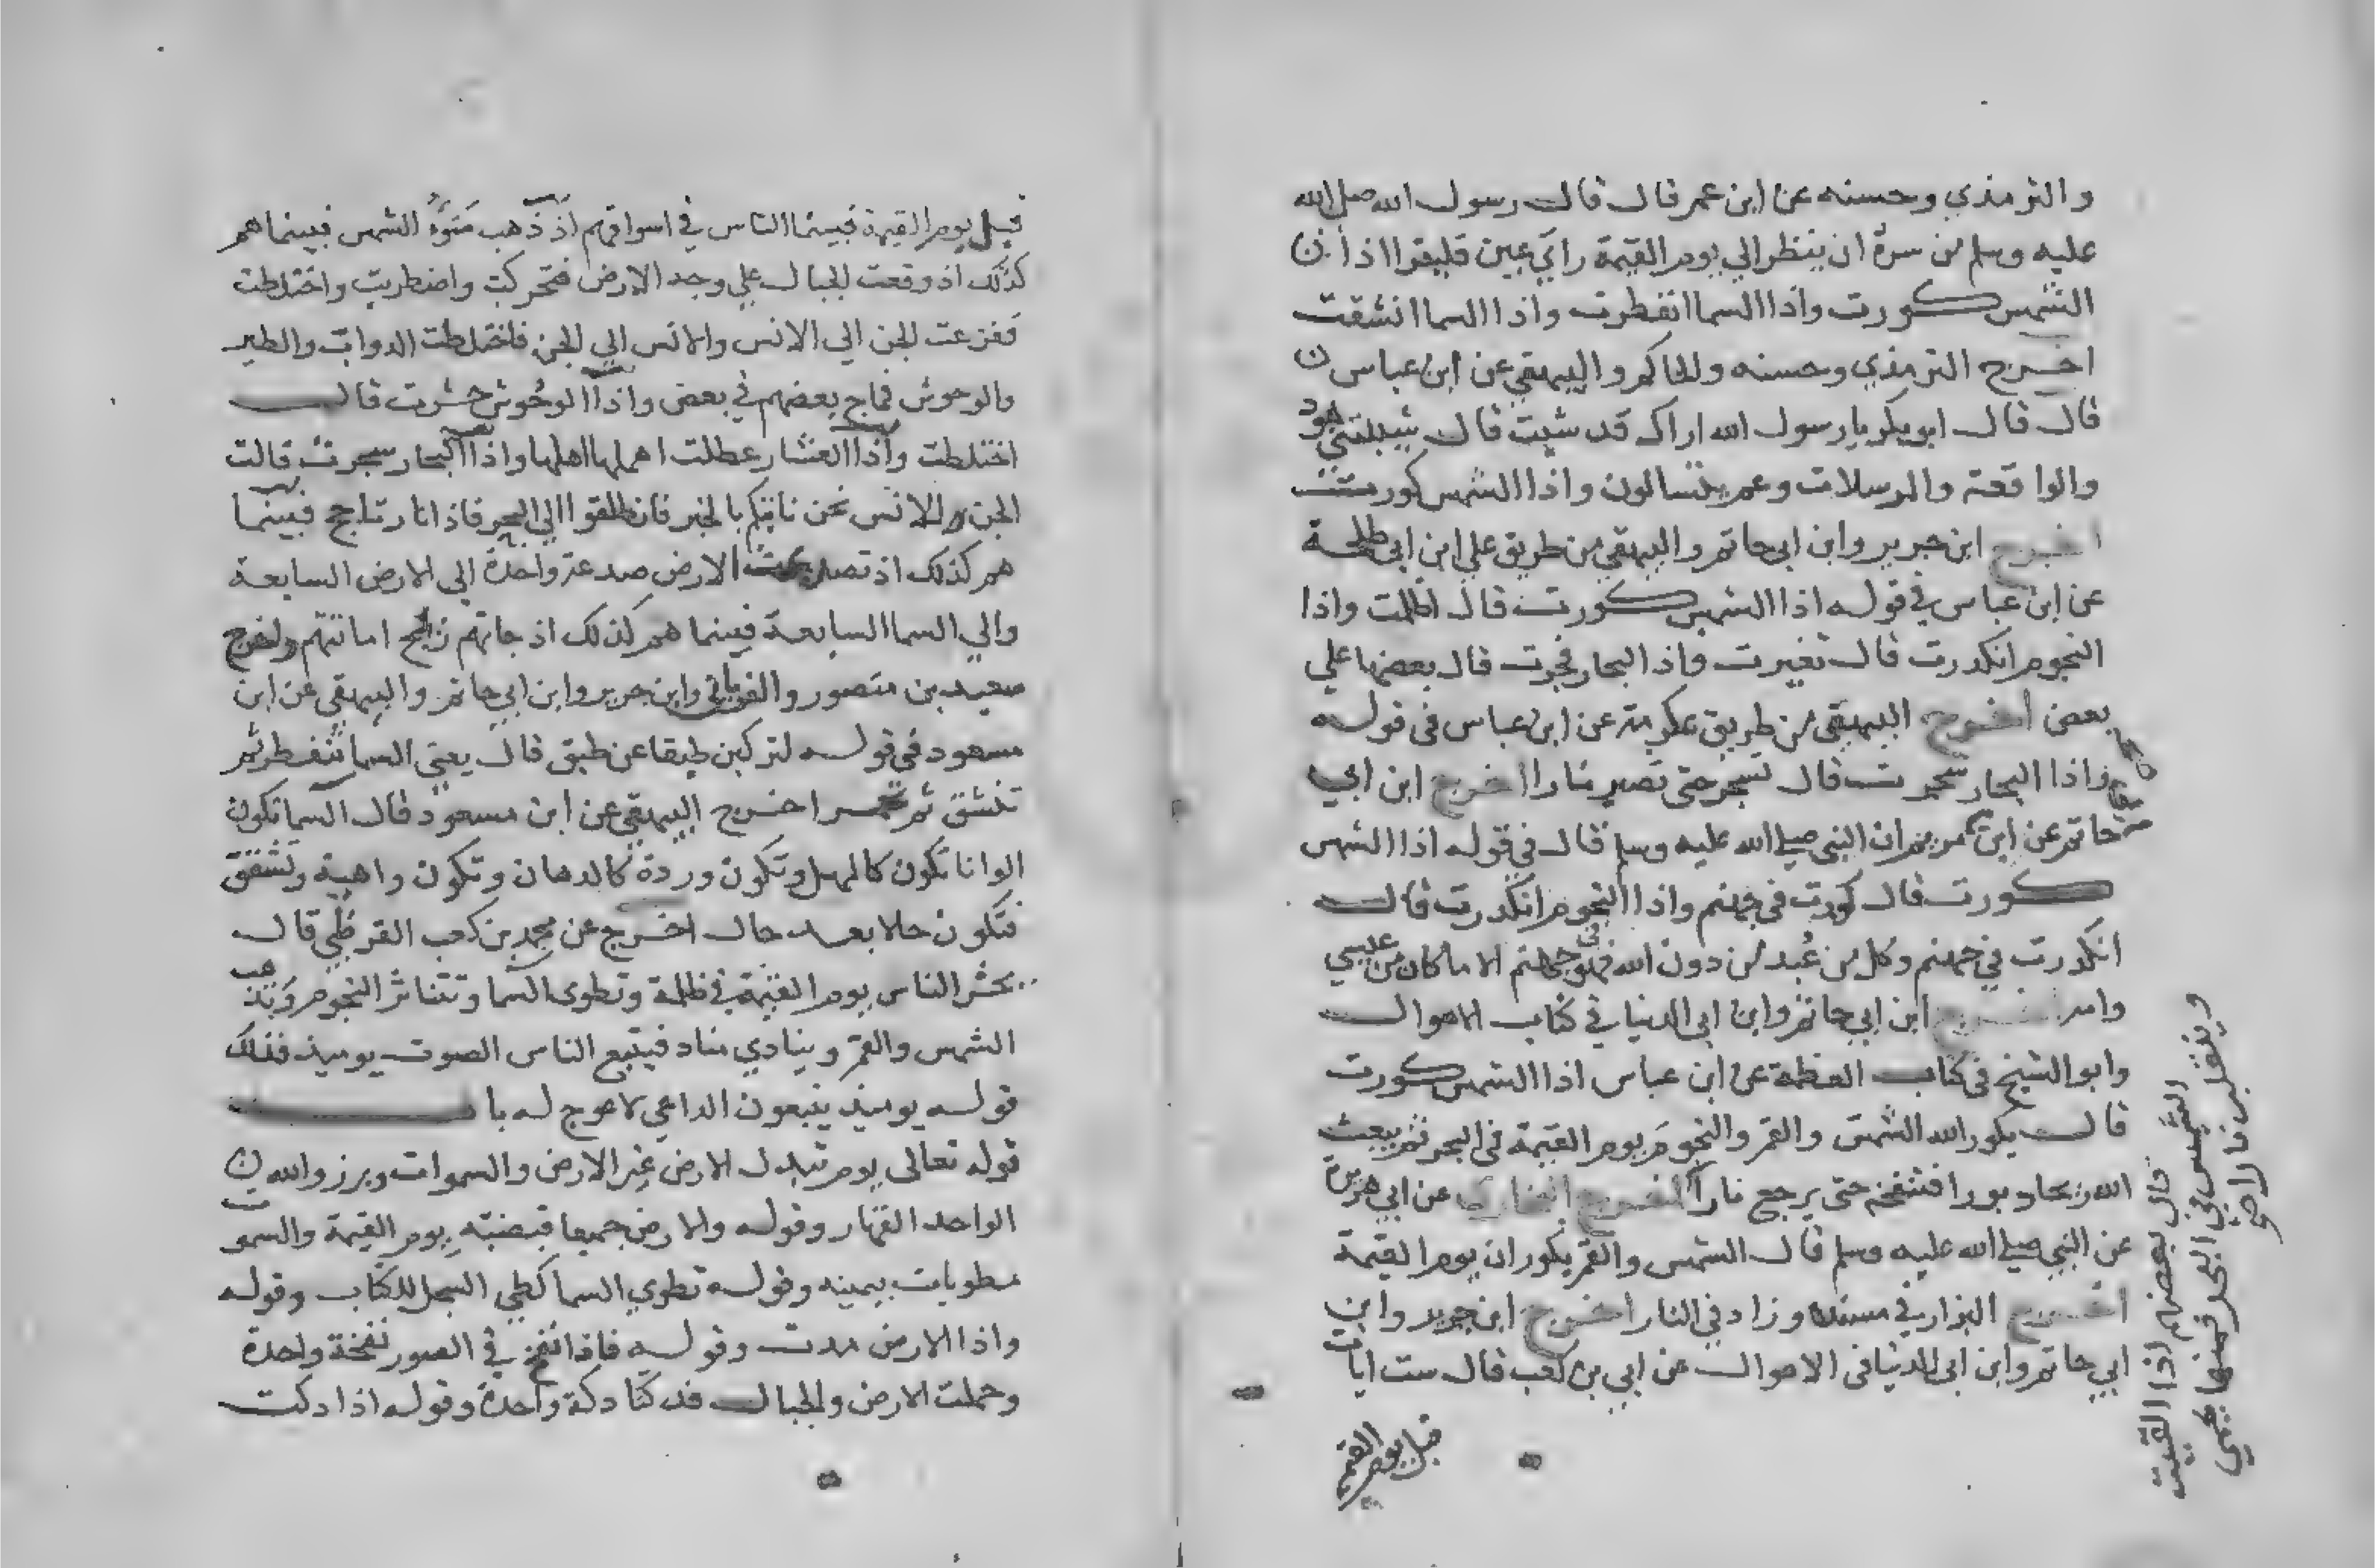 والترمذي وحسنه عن ابن عمر قال قال رسول الله صلى الله
عليه وسلم من سره ان ينظر الي يوم القيمة راي عين فليقرا اذا
الشمس كورت واذا السما انفطرت واذا السما انشقت
اخرج الترمذي وحسنه والحاكم والبيهقي عن ابن عباس
قال قال ابو بكر يا رسول الله اراك قد شبت قال شيبتني هود
والواقعة والمرسلات وعم يتسالون واذا الشمس كورت
اخرج ابن جرير وابن ابي حاتم والبيهقي من طريق علي ابن ابي طلحة
عن ابن عباس في قوله اذا الشمس كورت قال اظلمت واذا
النجوم انكدرت قال تغيرت واذا البحار فجرت قال بعضها علي
بعض اخرج البيهقي من طريق عكرمة عن ابن عباس في قوله
واذا البحار سجرت قال تسجر حتى تصير نارا اخرج ابن ابي
حاتم عن ابن مريم ان النبي صلي الله عليه وسلم قال في قوله اذا الشمس
كورت قال كورت في جهنم واذا النجوم انكدرت قال
انكدرت في جهنم وكل من عُبد من دون الله فهو في جهنم الا ما كان من عيسي
وامه اخرج ابن ابي حاتم وابن ابي الدنيا في كتاب الاهوال
وابو الشيخ في كتاب العظمة عن ابن عباس اذا الشمس كورت
قال يكور الله الشمس والقمر والنجوم يوم القيمة في البحر ثم يبعث
الله ريحا دبورا فتنفخه حتى يرجع نارا اخرج البخاري عن ابي هريرة
عن النبي صلي الله عليه وسلم قال الشمس والقمر يكوران يوم القيمة
اخرج البزار في مسنده وزاد في النار اخرج ابن جرير وابن
ابي حاتم وابن ابي الدنيا في الاهوال عن ابي بن كعب قال ست ايات
قبل يوم القيمة
قال بعضهم اذا القيت
الشمس في البحر فمنها يحمي
وينقلب نارا
قبل يوم القيمة فبينما الناس في اسواقهم اذ ذهب ضوء الشمس فبينما هم
كذلك اذ وقعت الجبال علي وجه الارض فتحركت واضطربت واختلطت
ففزعت الجن الي الانس والانس الي الجن فاختلطت الدواب والطير
والوحوش فماج بعضهم في بعض واذا الوحوش حشرت قال
اختلطت واذا العشار عطلت اهملها اهلها واذا البحار سجرت قالت
الجن للانس نحن ناتيكم بالخبر فانطلقوا الي البحر فاذا نار تاجج فبينما
هم كذلك اذ تصدعت الارض صدعة واحدة الي الارض السابعة
والي السما السابعة فبينما هم كذلك اذ جاتهم ريح اماتتهم واخرج
سعيد بن منصور والفريابي وابن جرير وابن ابي حاتم والبيهقي عن ابن
مسعود في قوله لتركبن طبقا عن طبق قال يعني السما تنفطر ثم
تنشق ثم تحمر اخرج البيهقي عن ابن مسعود قال السما تكون
الوانا تكون كالمهل وتكون وردة كالدهان وتكون واهية وتشقق
فتكون حالا بعد حال اخرج عن محمد بن كعب القرظي قال
يحشر الناس يوم القيمة في ظلمة وتطوى السما وتتناثر النجوم وتذهب
الشمس والقمر وينادي مناد فيتبع الناس الصوت يوميذ فذلك
قوله يوميذ يتبعون الداعي لا عوج له باب
قوله تعالى يوم تبدل الارض غير الارض والسموات وبرزوا لله
الواحد القهار وقوله والارض جميعا قبضته يوم القيمة والسموت
مطويات بيمينه وقوله نطوي السما كطي السجل للكتاب وقوله
واذا الارض مدت وقوله فاذا نفخ في الصور نفخة واحدة
وحملت الارض والجبال فدكتا دكة واحدة وقوله اذا دكت